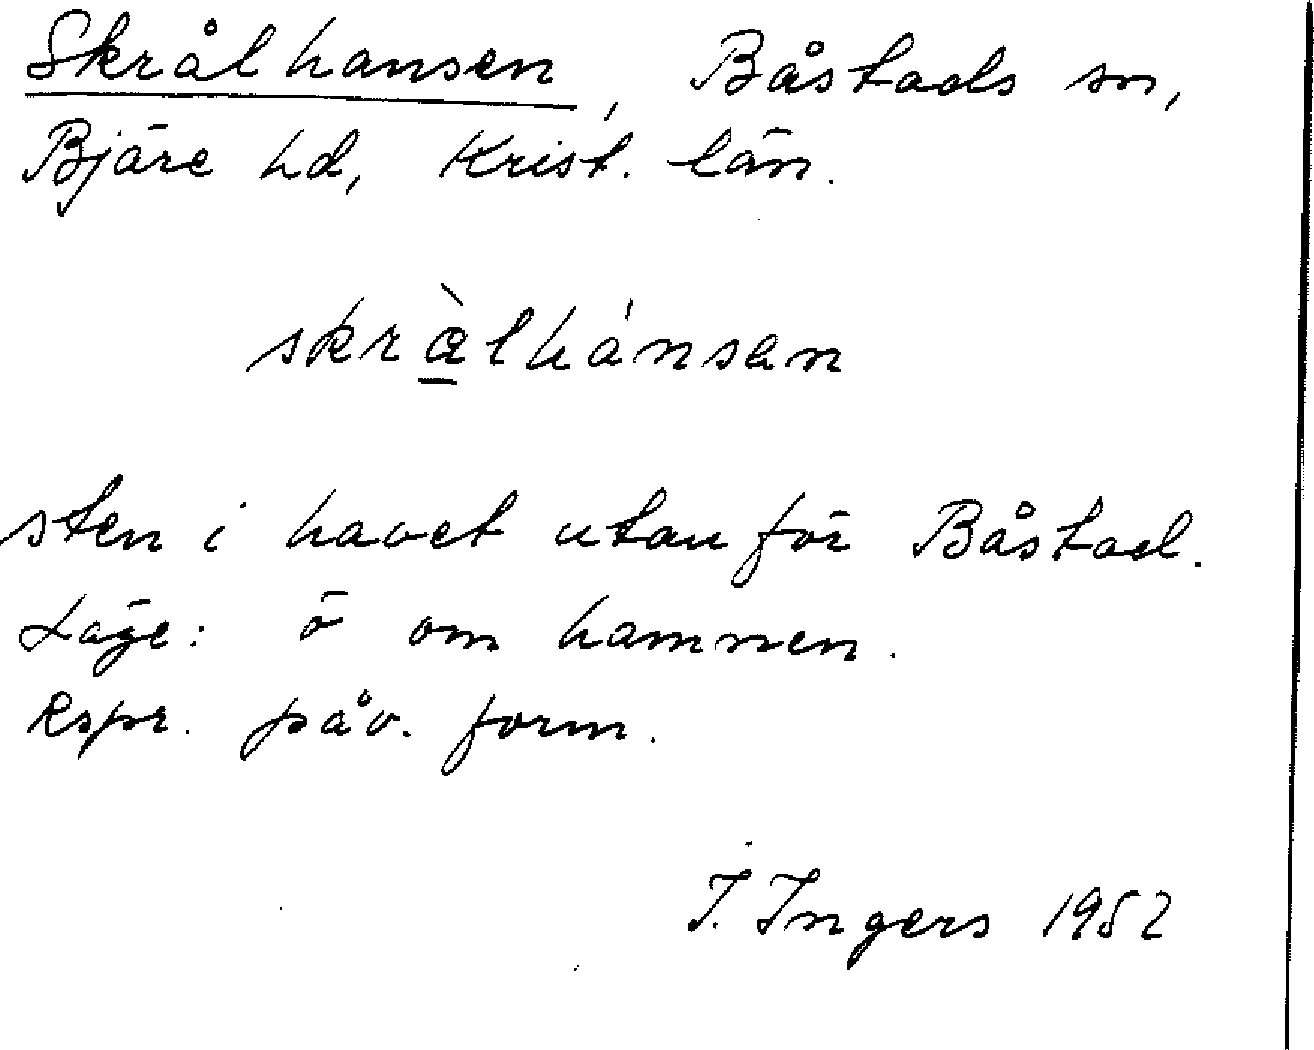 Skrålhansen, Båstads sn,
Bjäre hd, Krist. län.
skræ̀lhánsen
sten i havet utanför Båstad.
Läge: ö om hamnen.
Rspr. påv. form.
I. Ingers 1952